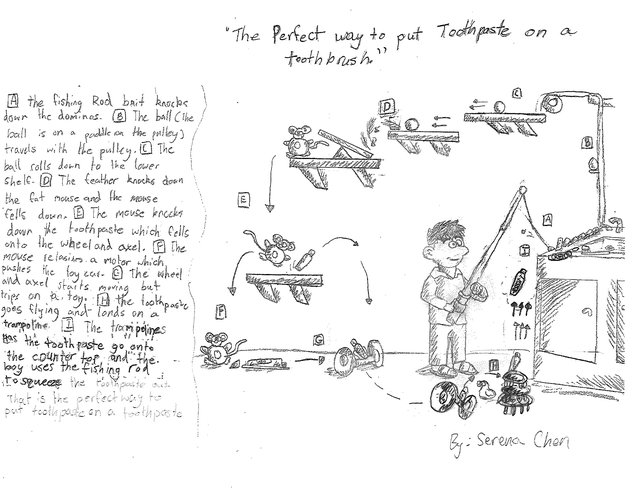 "The Perfect way to put Toothpaste on a
toothbrush."
A the fishing Rod bait knocks
down the dominos. B The ball (the
ball is on a paddle on the pulley)
travels with the pulley. C The
ball rolls down to the lower
shelf. D The feather knocks down
the fat mouse and the mouse
fells down. E The mouse knocks
down the toothpaste which fells
onto the wheel and axel. F The
mouse releases a motor which
pushes the toy car. G The wheel
and axel starts moving but
trips on a toy. H the toothpaste
goes flying and lands on a
trampoline. I The trampolines
has the toothpaste go onto
the counter top and the
boy uses the fishing rod
to squeeze the toothpaste out.
That is the perfect way to
put toothpaste on a toothpaste
C
D
B
E
A
I
F
G
H
By: Serena Chen